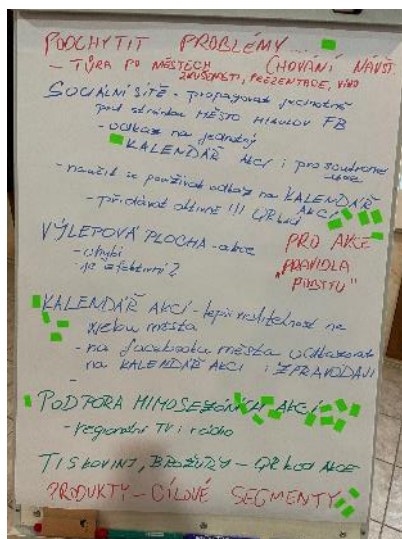 PODCHYTIT PROBLÉMY....
CHOVÁNÍ NÁVŠT.
- TÚRA PO MĚSTECH
ZKUŠENOSTI, PREZENTACE, VÍNO
SOCIÁLNÍ SÍTĚ - propagovat jednotně
pod stránkou MĚSTO MIKULOV FB
- odkaz na jednotný
KALENDÁŘ AKCÍ i pro soukromé
akce
- naučit se používat odkaz na KALENDÁŘ
AKCÍ
- přidávat aktivně !!! QR kód
VÝLEPOVÁ PLOCHA - akce
- chybí
- je efektivní?
PRO AKCE
"PRAVIDLA
POBYTU"
KALENDÁŘ AKCÍ - lepší viditelnost na
webu města
- na facebooku města odkazovat
na KALENDÁŘ AKCÍ i ZPRAVODAJ
-
PODPORA MIMOSEZÓNÍCH AKCÍ
- regionální TV i rádio
TISKOVINY, BROŽURY - QR kod AKCE
PRODUKTY - CÍLOVÉ SEGMENTY